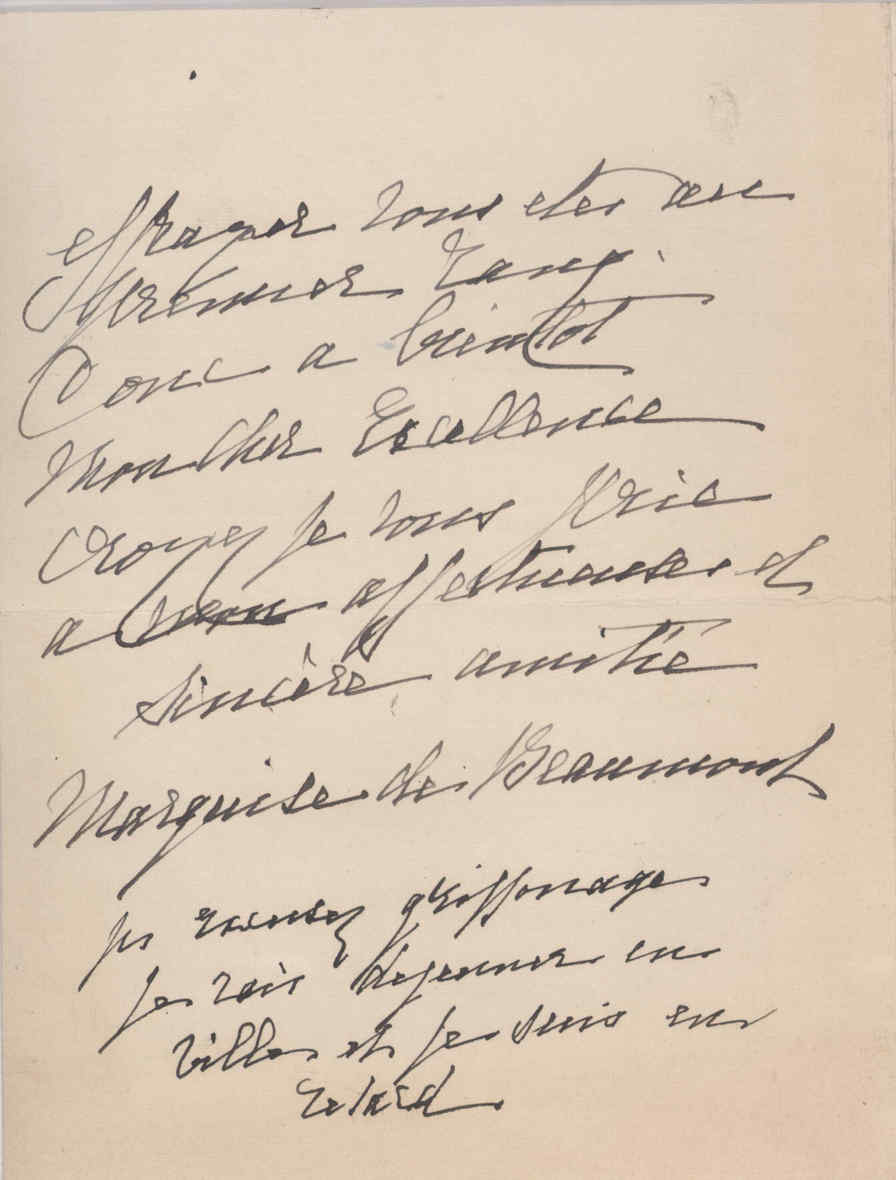 effrayer vous etes au
premier rang.
Donc a bientot
Mon Cher Excellence
croyez je vous prie
a mon affectueuse et
sincère amitié
Marquise de Beaumont
ps excusez griffonage
Je vais dejeuner en
ville et je suis en
retard